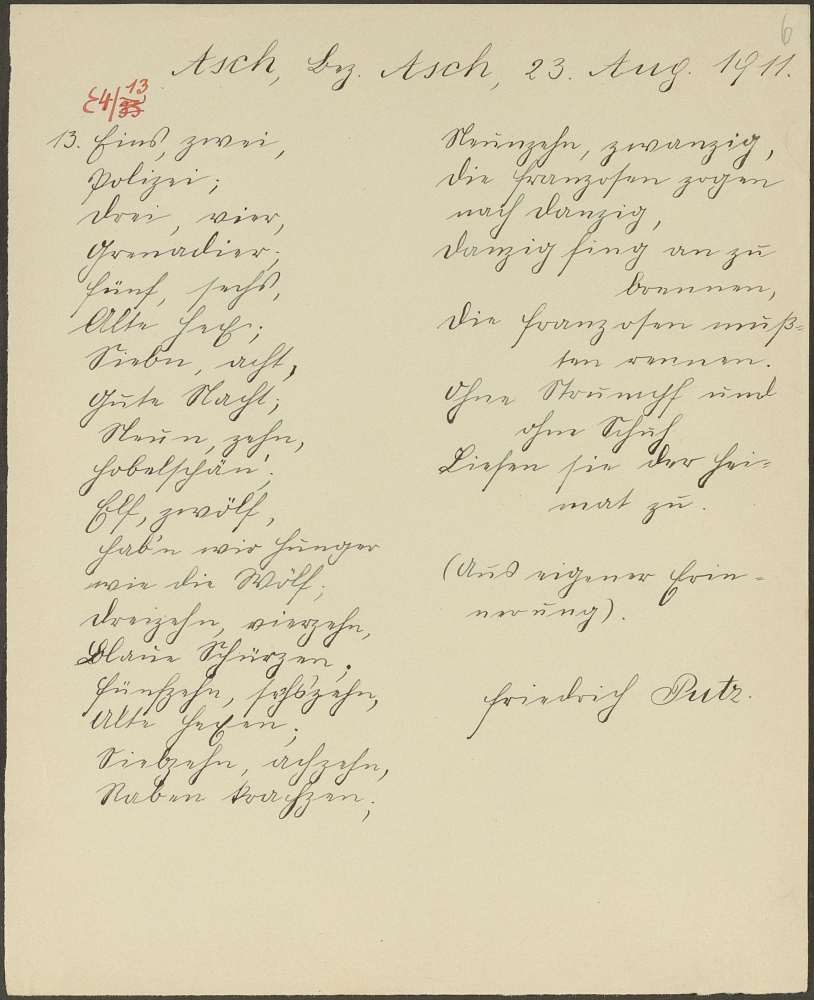 6
Asch, Bez. Asch, 23. Aug. 1911.
E4/13
13. Eins, zwei,
Polizei;
Drei, vier,
Grenadier;
Fünf, sechs,
Alte Hex;
Siebn, acht,
Gute Nacht;
Neun, zehn,
Hobelschän';
Elf, zwölf,
Hab'n wir Hunger
wie die Wölf;
Dreizehn, vierzehn,
Blaue Schürzen;
Fünfzehn, sechszehn,
Alte Hexen;
Siebzehn, achzehn,
Raben krachzen;
Neunzehn, zwanzig,
Die Franzosen zogen
nach Danzig,
Danzig fing an zu
brennen,
Die Franzosen muß=
ten rennen.
Ohne Strumpf und
ohne Schuh
Liefen sie der Hei=
mat zu.
(Aus eigener Erin=
nerung).
Friedrich Putz.